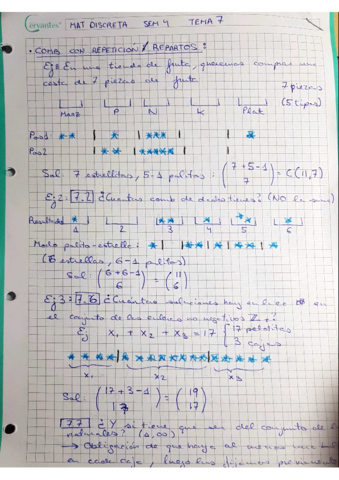 Cervantes MAT DISCRETA SEM 4 TEMA 7
• COMB CON REPETICIÓN / REPARTOS:
Ej1: En una tienda de fruta, queremos comprar una
cesta de 7 piezas de fruta
7 piezas
(5 tipos)
Manz P N K Plat
Pos1 ** | * | *** | | *
Pos2 | ** | ***** | |
Sol: 7 estrellitas, 5-1 palitos : (7+5-1 7) = C(11,7)
Ej2: 7.2 ¿Cuántas comb de dados tienes? (NO la suma)
Resultados * ** * ** *
1 2 3 4 5 6
Modo palito-estrella:
(6 estrellas, 6-1 palitos)
Sol: (6+6-1 6) = (11 6)
Ej3: 7.6 ¿Cuántas soluciones hay en la ec en
el conjunto de los enteros no negativos Z+?
Ej x1 + x2 + x3 = 17 { 17 pelotitas
3 cajas
x1 x2 x3
Sol: (17+3-1 17) = (19 17)
7.7 ¿Y si tiene que ser del conjunto de
naturales? (0,∞)
→ Obligación de que haya al menos una
en cada caja, luego las fijamos previamente